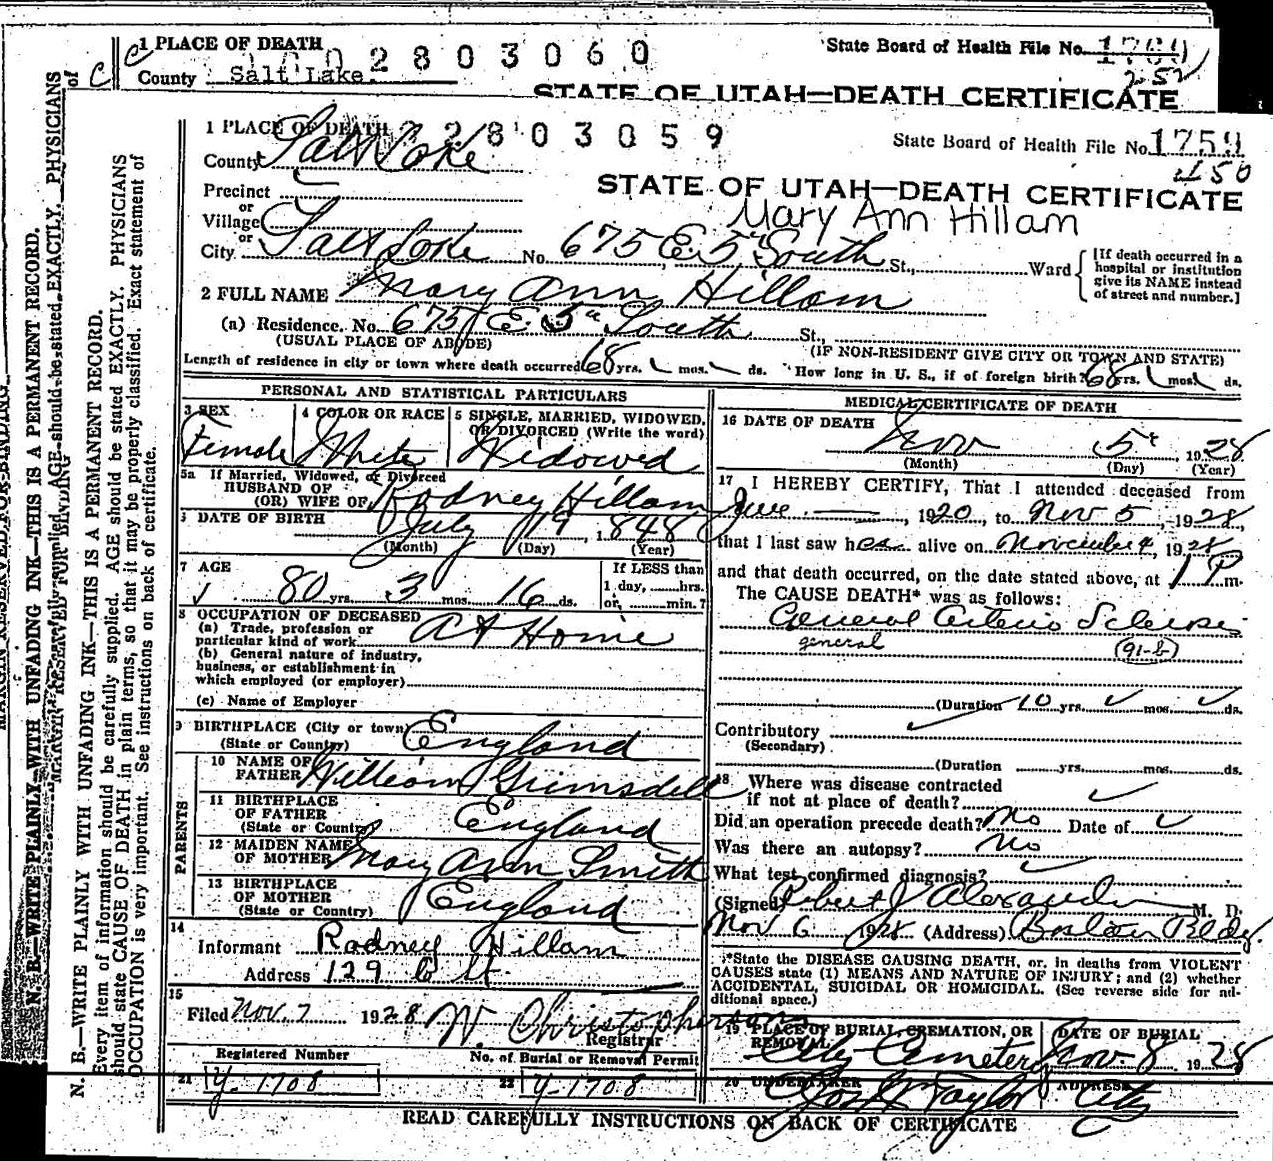 1 PLACE OF DEATH
2803060
State Board of Health File No. 1760
252
County Salt Lake.
STATE OF UTAH—DEATH CERTIFICATE
1 PLACE OF DEATH
22803059
State Board of Health File No. 1759
450
County Salt Lake
Precinct
or
Village
or
STATE OF UTAH—DEATH CERTIFICATE
Mary Ann Hillam
City Salt Lake No. 675 E 5" South St., Ward
[If death occurred in a
hospital or institution
give its NAME instead
of street and number.]
2 FULL NAME Mary Ann Hillam
(a) Residence. No. 675 E 5th South St.,
(USUAL PLACE OF ABODE) (IF NON-RESIDENT GIVE CITY OR TOWN AND STATE)
Length of residence in city or town where death occurred 68 yrs. mos. ds. How long in U. S., if of foreign birth? 68 yrs. mos. ds.
PERSONAL AND STATISTICAL PARTICULARS
3 SEX 4 COLOR OR RACE 5 SINGLE, MARRIED, WIDOWED,
OR DIVORCED (Write the word)
Female White Widowed
5a If Married, Widowed, or Divorced
HUSBAND OF
(OR) WIFE OF Rodney Hillam
DATE OF BIRTH July 19, 1848
(Month) (Day) (Year)
7 AGE
If LESS than
1 day, hrs.
or, min.?
80 yrs. 3 mos. 16 ds.
8 OCCUPATION OF DECEASED
(a) Trade, profession or
particular kind of work At Home
(b) General nature of industry,
business, or establishment in
which employed (or employer)
(c) Name of Employer
9 BIRTHPLACE (City or town)
(State or Country) England
PARENTS
10 NAME OF
FATHER William Grimsdell
11 BIRTHPLACE
OF FATHER
(State or Country) England
12 MAIDEN NAME
OF MOTHER Mary Ann Smith
13 BIRTHPLACE
OF MOTHER
(State or Country) England
14
Informant Rodney Hillam
Address 129 St.
15
Filed Nov. 7 1928 W. Christopherson
Registrar
Registered Number No. of Burial or Removal Permit
21 Y-1708 22 Y-1708
MEDICAL CERTIFICATE OF DEATH
16 DATE OF DEATH
Nov 5" 1928
(Month) (Day) (Year)
17 I HEREBY CERTIFY, That I attended deceased from
June 1920, to Nov 5, 1928,
that I last saw her alive on November 4, 1928
and that death occurred, on the date stated above, at 1 P m.
The CAUSE DEATH* was as follows:
General Arterio Sclerosis
general (91-b)
(Duration 10 yrs. mos. ds.
Contributory
(Secondary)
(Duration yrs. mos. ds.
18 Where was disease contracted
if not at place of death?
Did an operation precede death? No Date of
Was there an autopsy? No
What test confirmed diagnosis?
(Signed) Robert J Alexander M. D.
Nov 6 1928 (Address) Boston Bldg.
*State the DISEASE CAUSING DEATH, or, in deaths from VIOLENT
CAUSES state (1) MEANS AND NATURE OF INJURY; and (2) whether
ACCIDENTAL, SUICIDAL OR HOMICIDAL. (See reverse side for additional space.)
19 PLACE OF BURIAL, CREMATION, OR
REMOVAL
City Cemetery
DATE OF BURIAL
Nov. 8 1928
20 UNDERTAKER
Taylor
ADDRESS
City
READ CAREFULLY INSTRUCTIONS ON BACK OF CERTIFICATE
N. B.—WRITE PLAINLY WITH UNFADING INK—THIS IS A PERMANENT RECORD.
Every item of information should be carefully supplied. AGE should be stated EXACTLY. PHYSICIANS
should state CAUSE OF DEATH in plain terms, so that it may be properly classified. Exact statement of
OCCUPATION is very important. See instructions on back of certificate.
MARGIN RESERVED FOR BINDING
N. B.—WRITE PLAINLY WITH UNFADING INK—THIS IS A PERMANENT RECORD.
AGE should be stated EXACTLY. PHYSICIANS